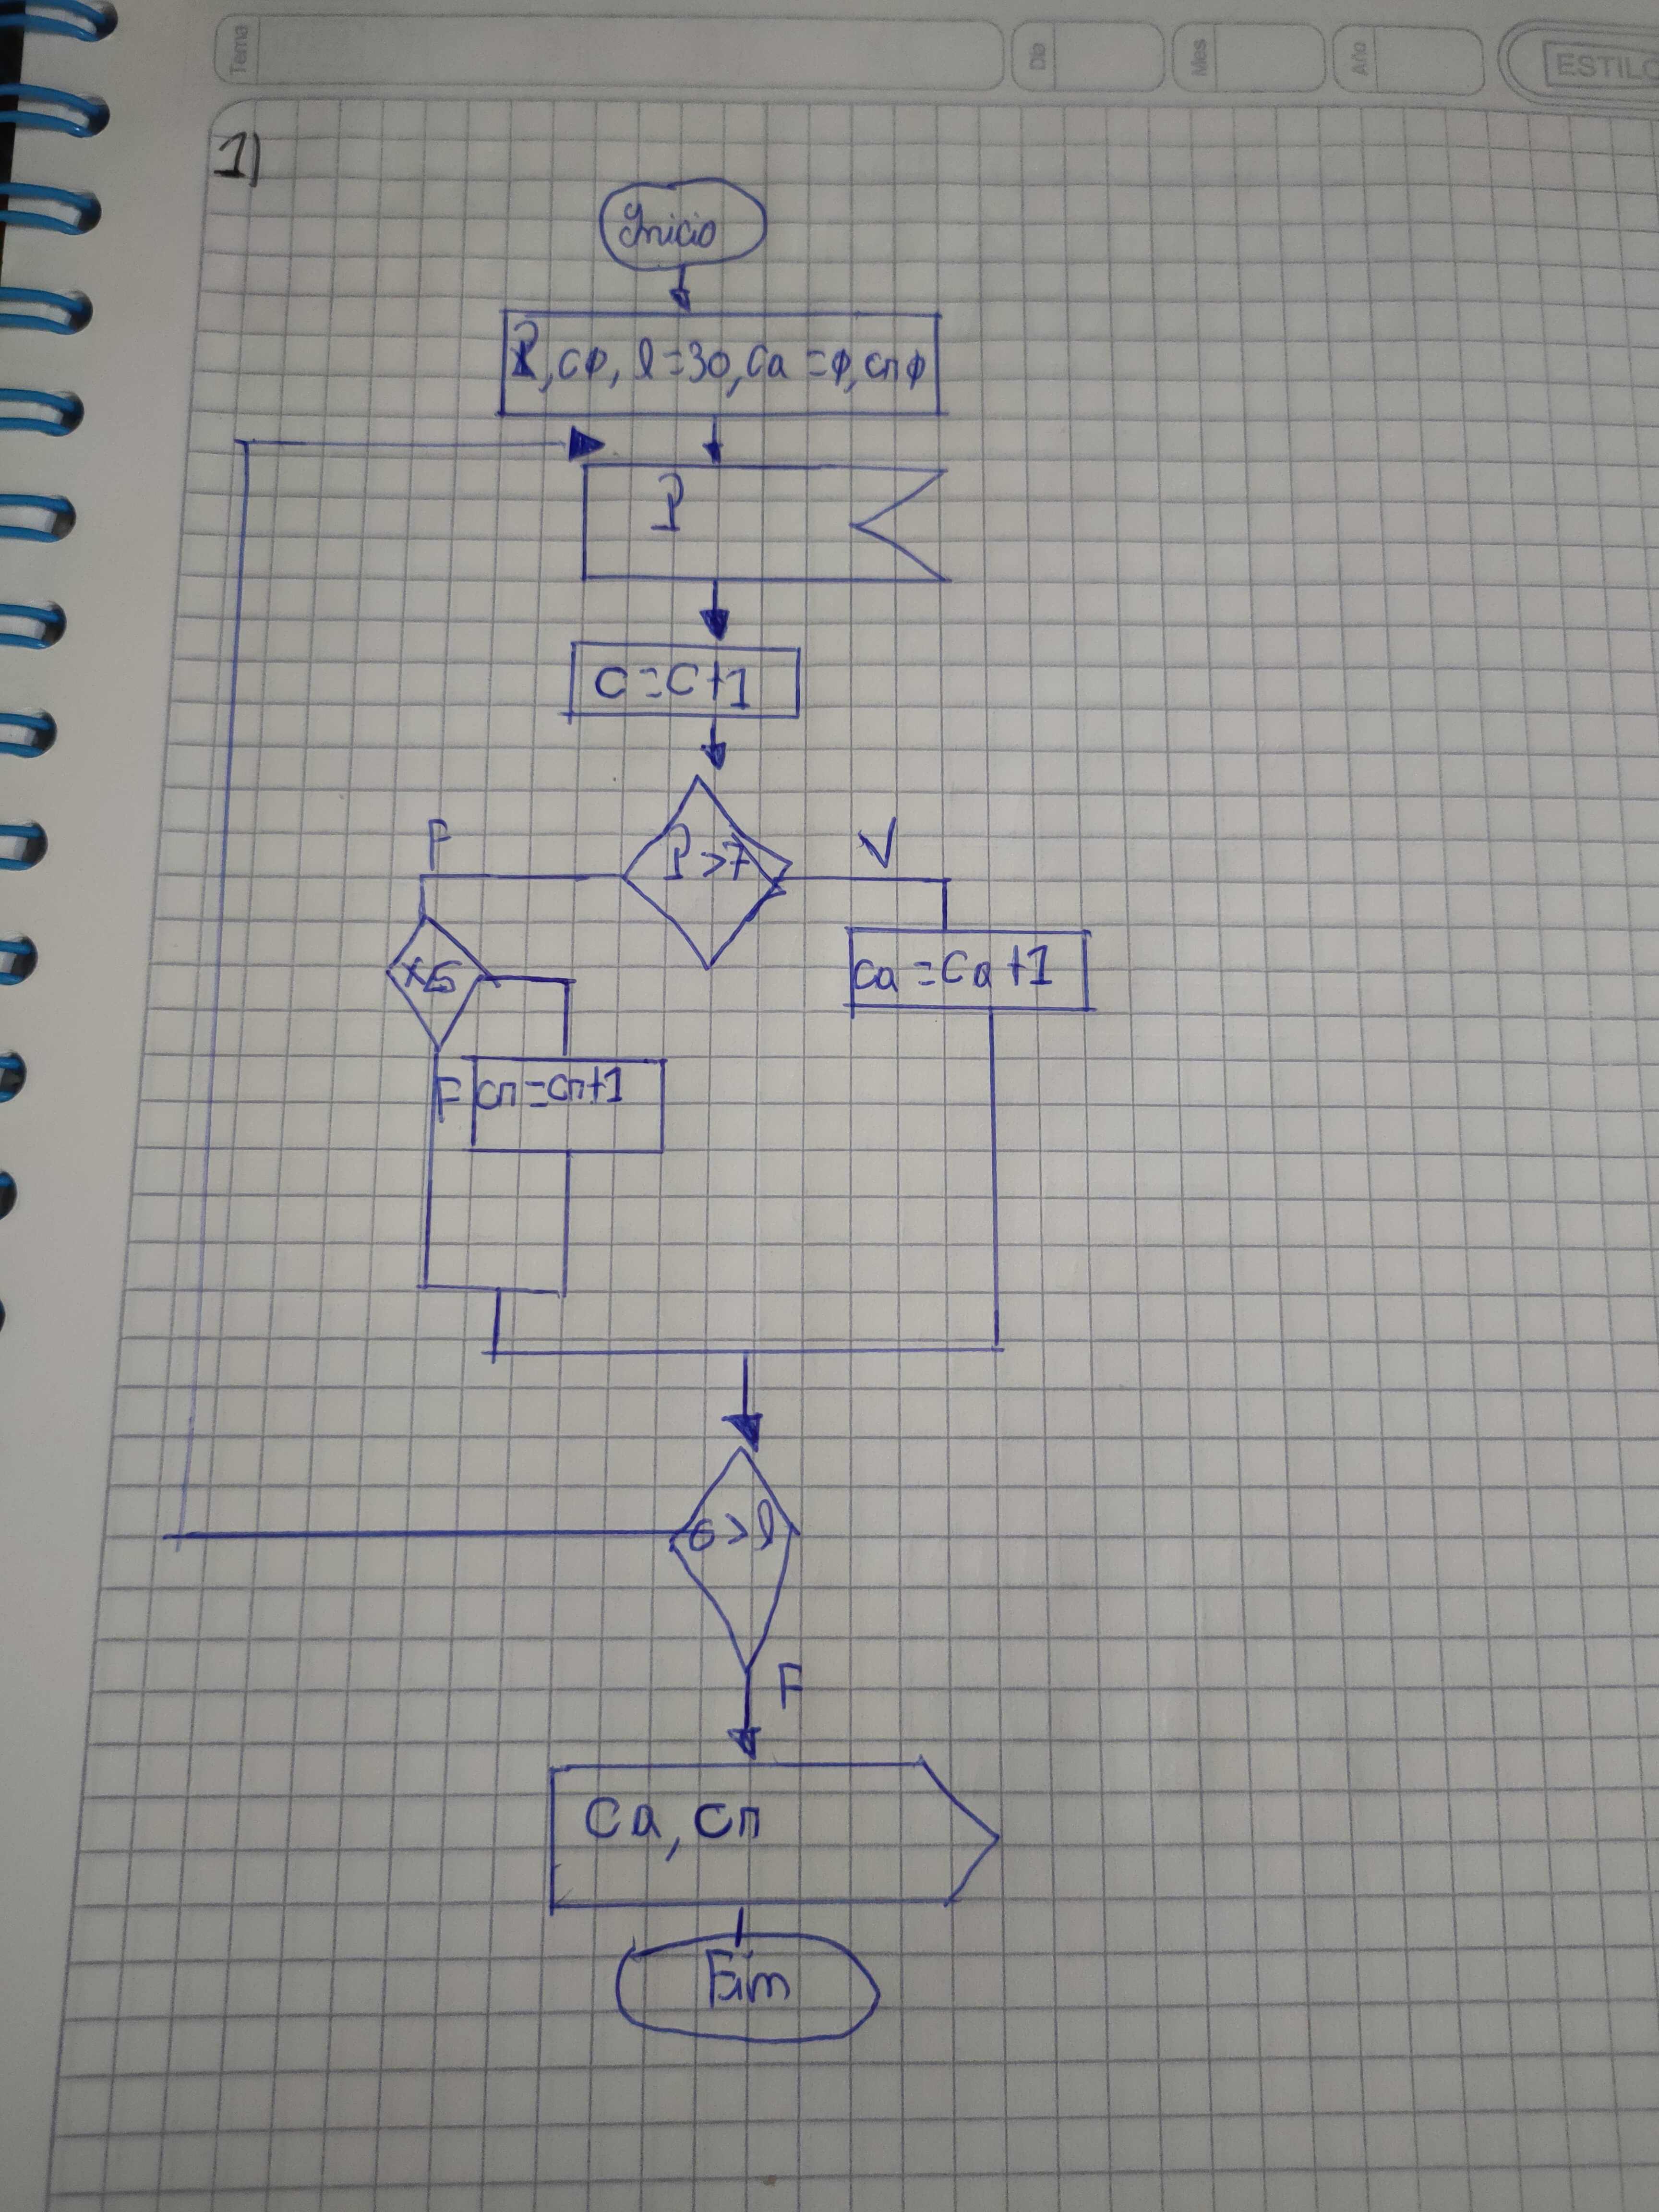 Tema Dia Mes Año ESTILO
1)
Inicio
P, cφ, l=30, ca=φ, cnφ
P
c=c+1
P>7
F V
x≤5
ca=ca+1
F cn=cn+1
c>l
F
Ca, cn
Fin